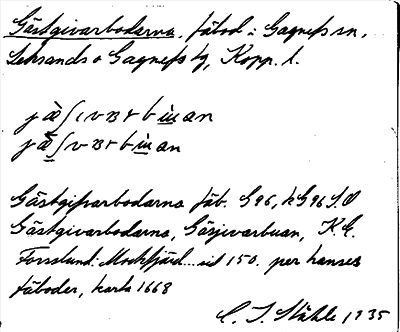 Gästgivarbodarna, fäbod i Gagnefs sn,
Leksands o Gagnefs tg, Kopp. l.
Gästgifvarbodarna fäb. G 96, k G 96 S.O
Gästgivarbodarna, Gäsjevarbuan, K.E.
Forsslund: Mockfjärd... sid 150. per hanses
fäboder, karta 1668
C. I. Ståhle 1935